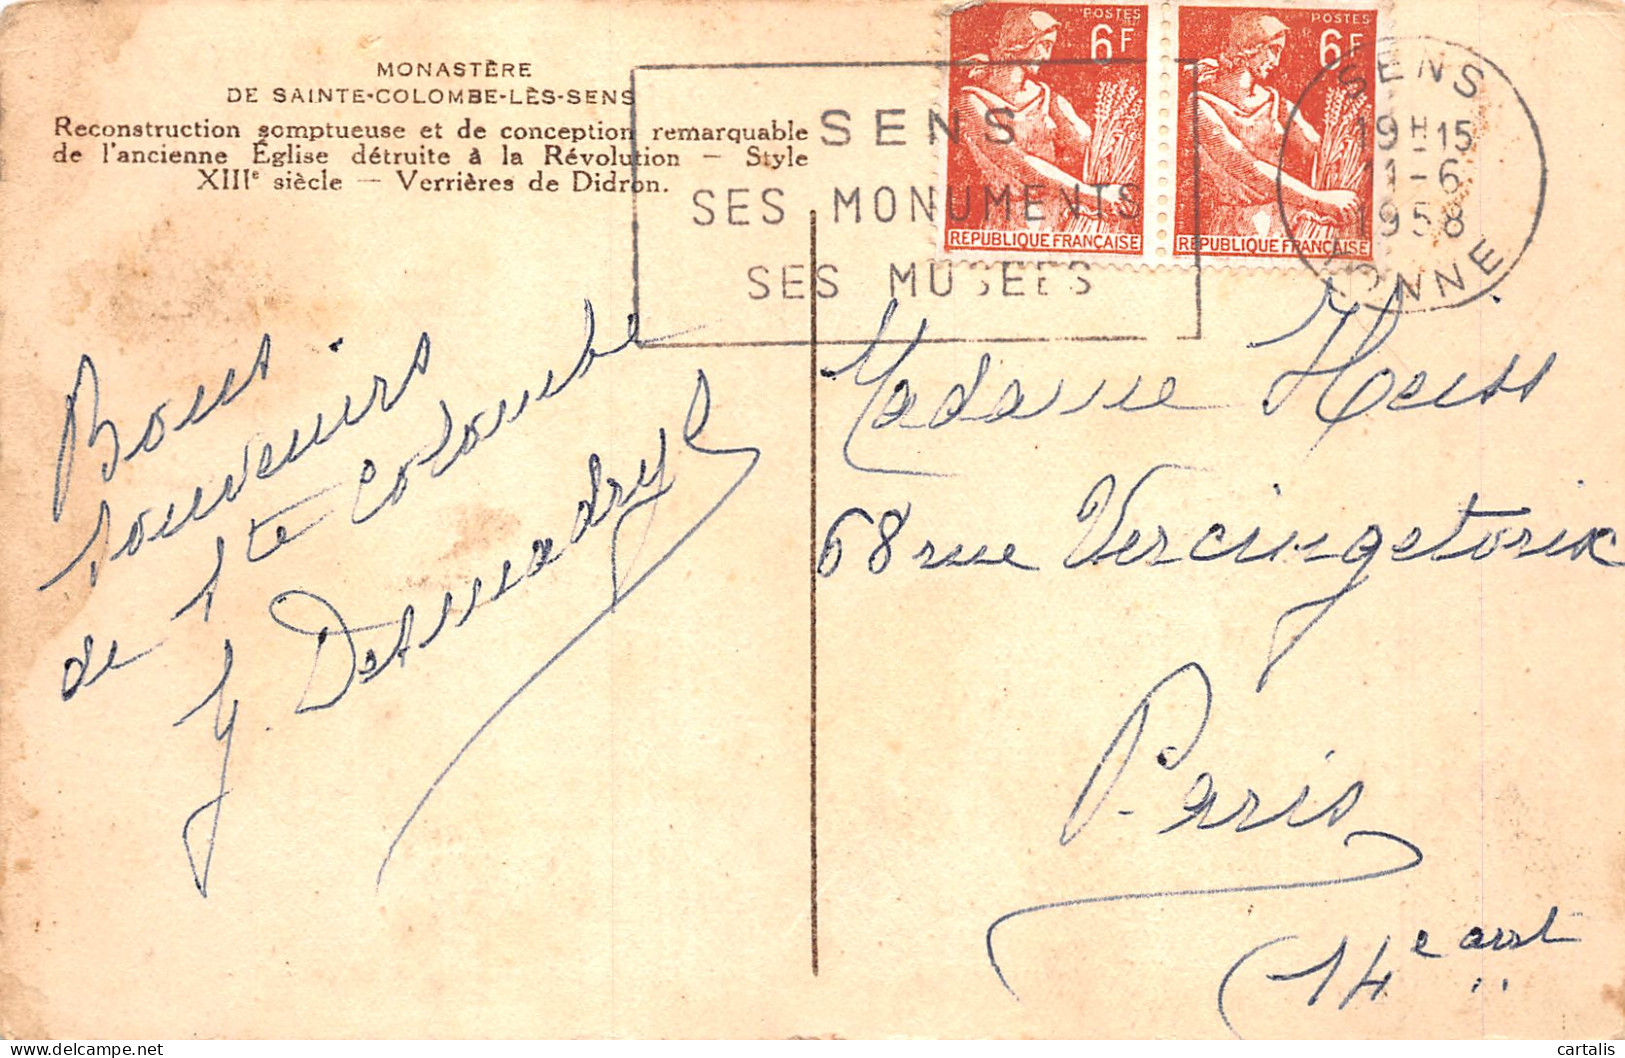 MONASTÈRE
DE SAINTE-COLOMBE-LÈS-SENS
Reconstruction somptueuse et de conception remarquable
de l'ancienne Église détruite à la Révolution — Style
XIIIe siècle — Verrières de Didron.
SENS
SES MONUMENTS
SES MUSÉES
POSTES
6F
REPUBLIQUE FRANÇAISE
POSTES
6F
REPUBLIQUE FRANÇAISE
SENS
19H15
11-6
1958
YONNE
Bons
souvenirs
de Ste Colombe
Madame Heiss
68 rue Vercingetorix
Paris
14e arrt
cartalis